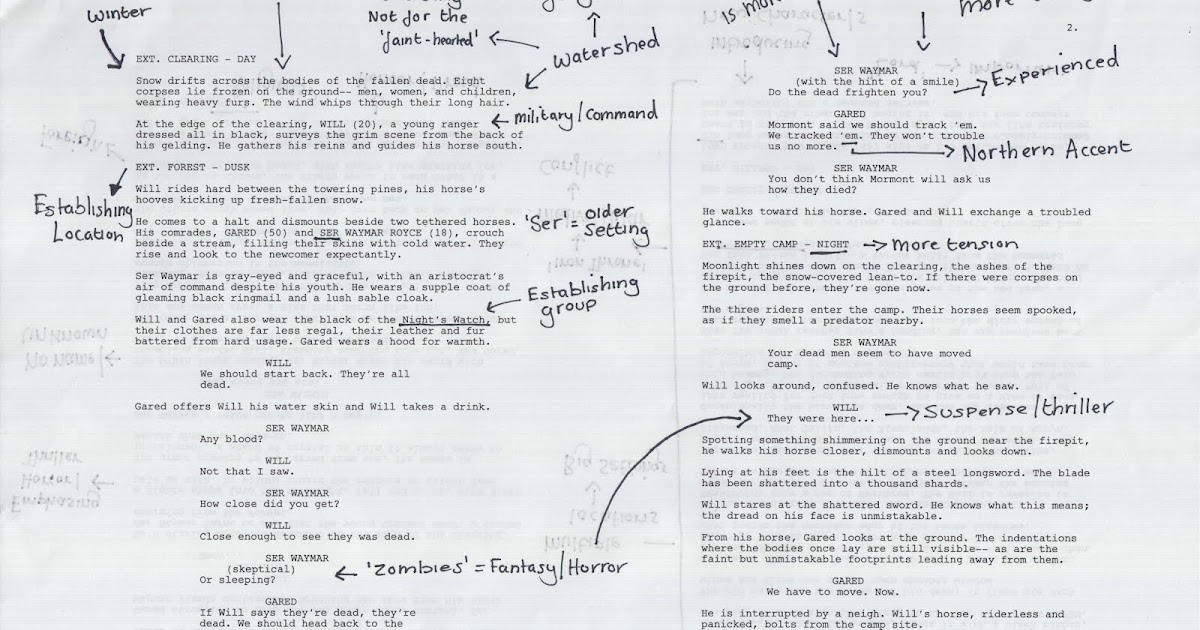 Winter
Not for the
'faint-hearted'
Watershed
EXT. CLEARING - DAY
Snow drifts across the bodies of the fallen dead. Eight
corpses lie frozen on the ground-- men, women, and children,
wearing heavy furs. The wind whips through their long hair.
military/Command
At the edge of the clearing, WILL (20), a young ranger
dressed all in black, surveys the grim scene from the back of
his gelding. He gathers his reins and guides his horse south.
EXT. FOREST - DUSK
Establishing
Location
Will rides hard between the towering pines, his horse's
hooves kicking up fresh-fallen snow.
He comes to a halt and dismounts beside two tethered horses.
His comrades, GARED (50) and SER WAYMAR ROYCE (18), crouch
beside a stream, filling their skins with cold water. They
rise and look to the newcomer expectantly.
'Ser' = older
Setting
Ser Waymar is gray-eyed and graceful, with an aristocrat's
air of command despite his youth. He wears a supple coat of
gleaming black ringmail and a lush sable cloak.
Establishing
group
Will and Gared also wear the black of the Night's Watch, but
their clothes are far less regal, their leather and fur
battered from hard usage. Gared wears a hood for warmth.
WILL
We should start back. They're all
dead.
Gared offers Will his water skin and Will takes a drink.
SER WAYMAR
Any blood?
WILL
Not that I saw.
SER WAYMAR
How close did you get?
WILL
Close enough to see they was dead.
SER WAYMAR
(skeptical)
Or sleeping?
'Zombies' = Fantasy/Horror
GARED
If Will says they're dead, they're
dead. We should head back to the
2.
SER WAYMAR
(with the hint of a smile)
Do the dead frighten you?
Experienced
GARED
Mormont said we should track 'em.
We tracked 'em. They won't trouble
us no more.
Northern Accent
SER WAYMAR
You don't think Mormont will ask us
how they died?
He walks toward his horse. Gared and Will exchange a troubled
glance.
EXT. EMPTY CAMP - NIGHT
More tension
Moonlight shines down on the clearing, the ashes of the
firepit, the snow-covered lean-to. If there were corpses on
the ground before, they're gone now.
The three riders enter the camp. Their horses seem spooked,
as if they smell a predator nearby.
SER WAYMAR
Your dead men seem to have moved
camp.
Will looks around, confused. He knows what he saw.
WILL
They were here...
Suspense/thriller
Spotting something shimmering on the ground near the firepit,
he walks his horse closer, dismounts and looks down.
Lying at his feet is the hilt of a steel longsword. The blade
has been shattered into a thousand shards.
Will stares at the shattered sword. He knows what this means;
the dread on his face is unmistakable.
From his horse, Gared looks at the ground. The indentations
where the bodies once lay are still visible-- as are the
faint but unmistakable footprints leading away from them.
GARED
We have to move. Now.
He is interrupted by a neigh. Will's horse, riderless and
panicked, bolts from the camp site.